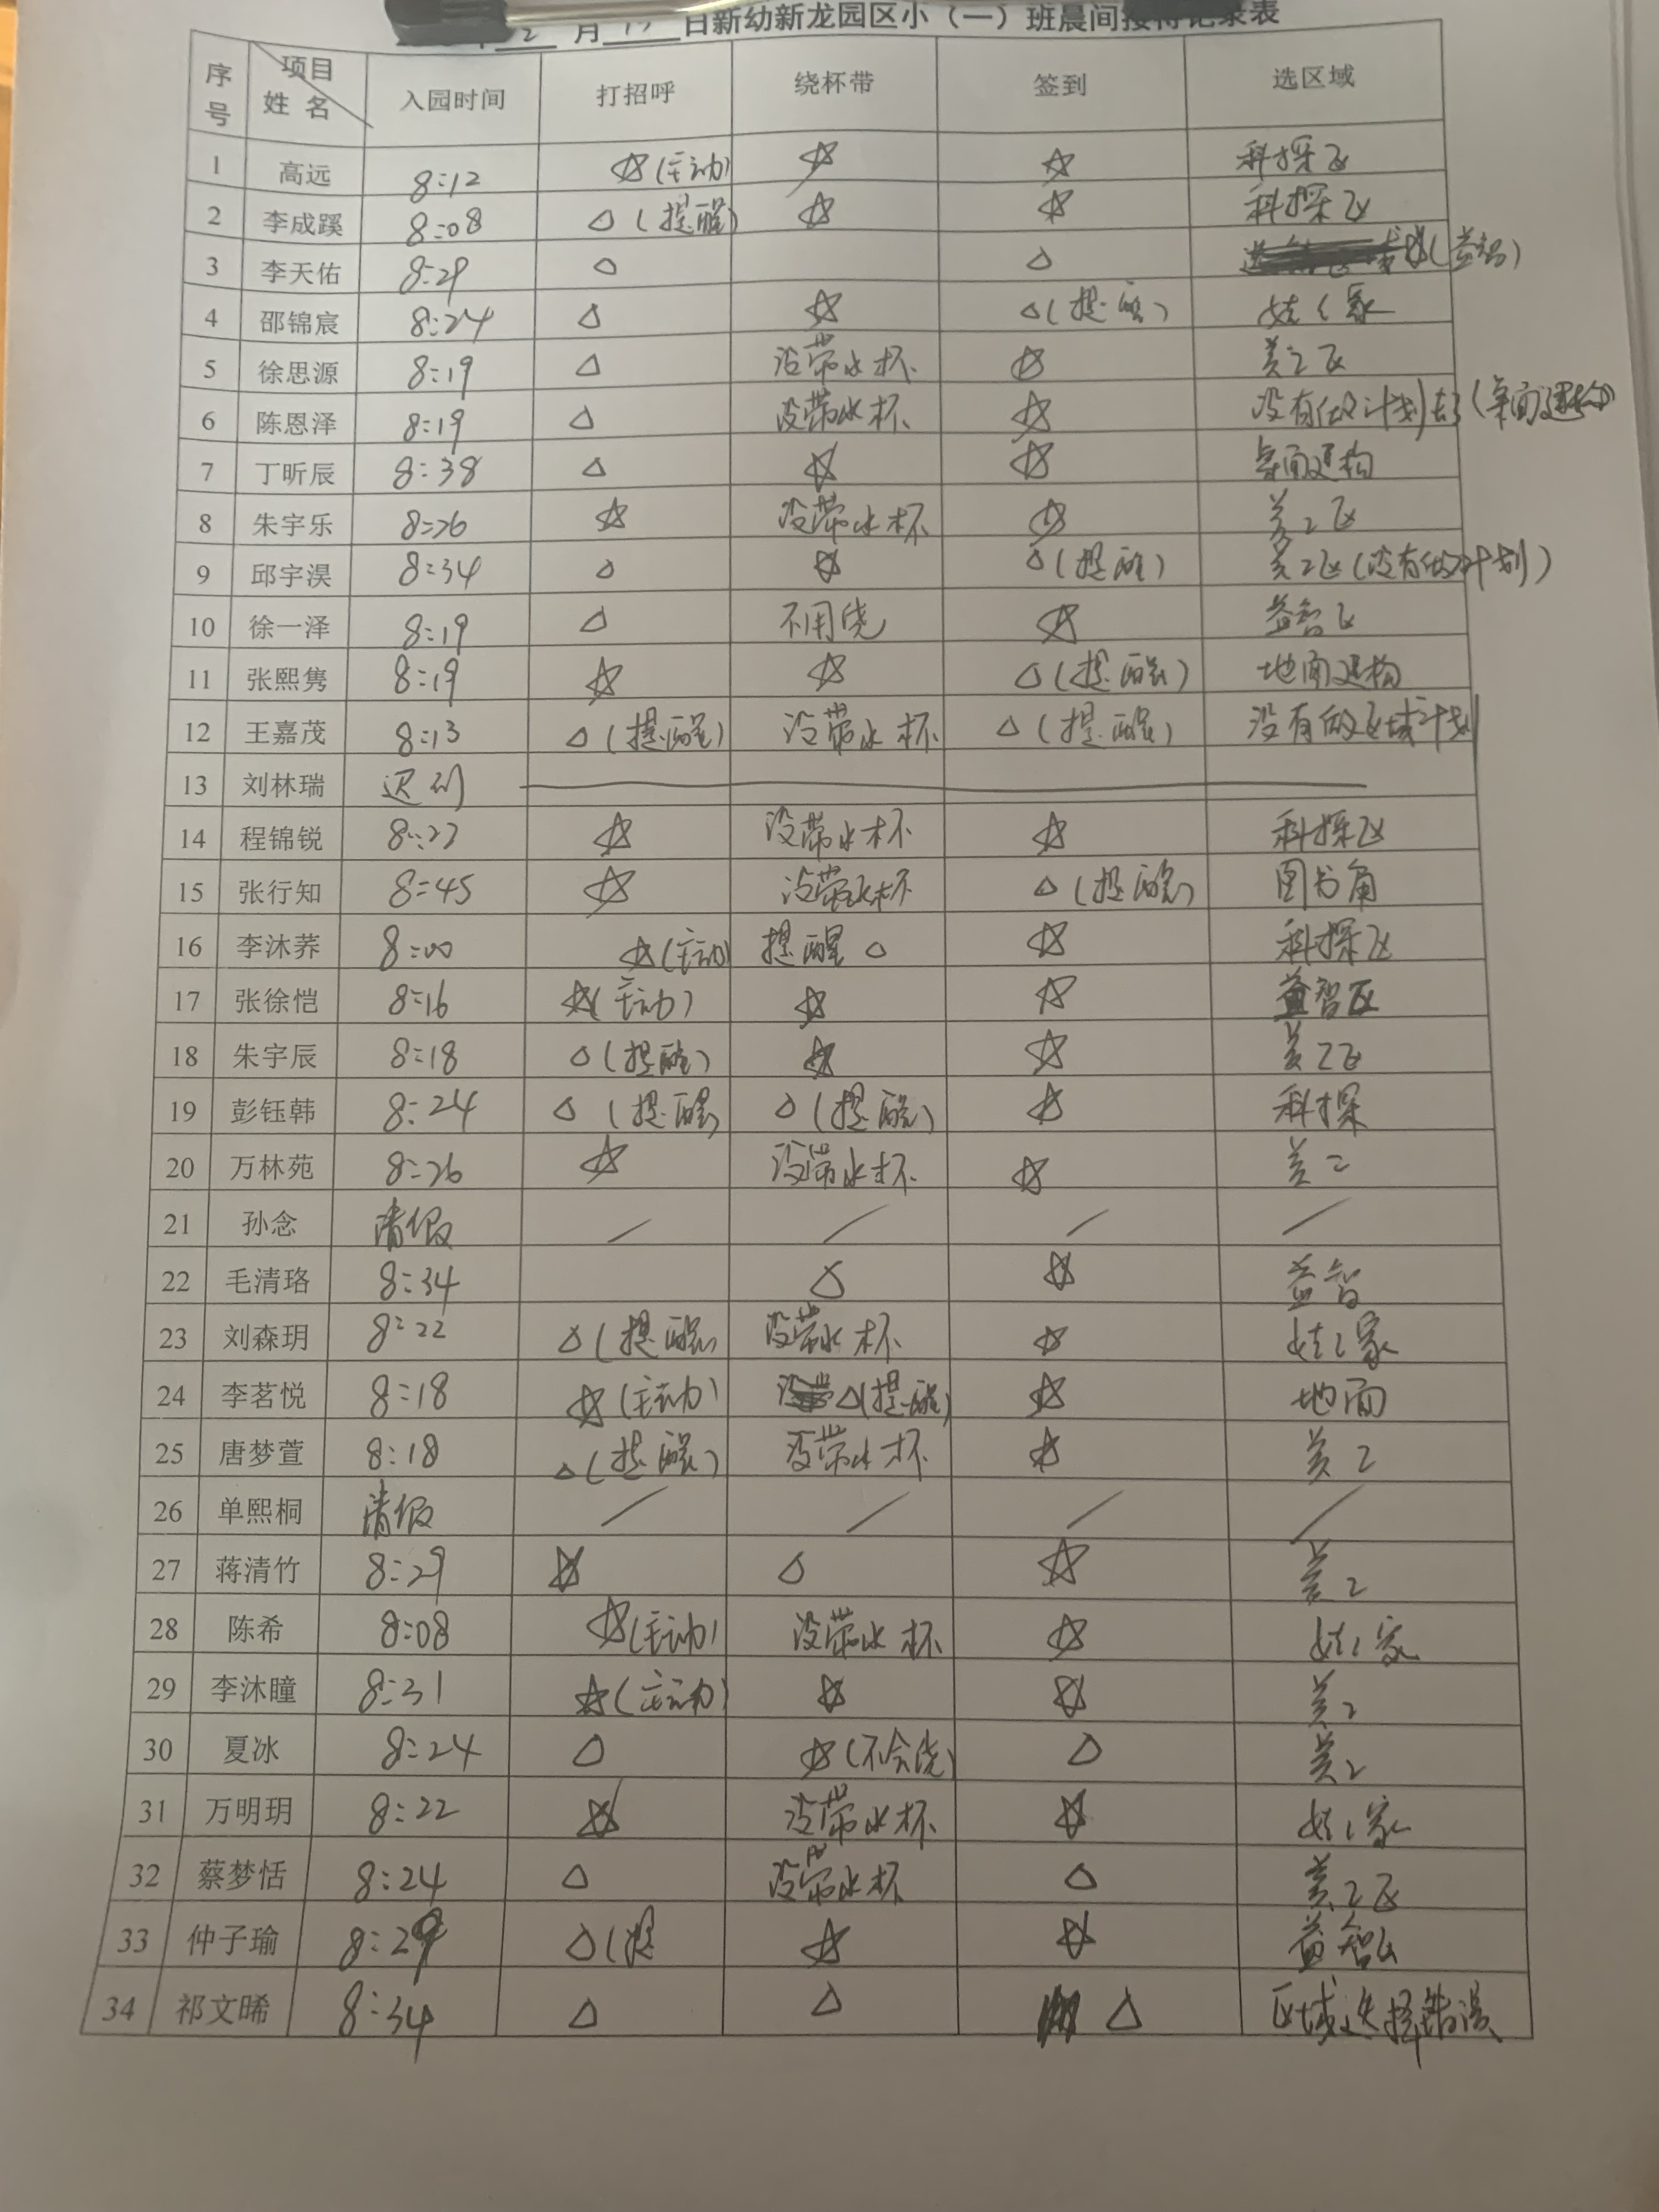 2 月 17 日新幼新龙园区小（一）班晨间接待记录表
序号 项目 姓名 入园时间 打招呼 绕杯带 签到 选区域
1 高远 8:12 ☆(主动) ☆ ☆ 科探区
2 李成蹊 8:08 △(提醒) ☆ ☆ 科探区
3 李天佑 8:29 △ △ ☆(益智)
4 邵锦宸 8:24 △ ☆ △(提醒) 娃娃家
5 徐思源 8:19 △ 没带水杯 ☆ 美工区
6 陈恩泽 8:19 △ 没带水杯 ☆ 没有做计划 (桌面建构)
7 丁昕辰 8:38 △ ☆ ☆ 桌面建构
8 朱宇乐 8:26 ☆ 没带水杯 ☆ 美工区
9 邱宇淏 8:34 △ ☆ △(提醒) 美工区(没有做计划)
10 徐一泽 8:19 △ 不用绕 ☆ 益智区
11 张熙隽 8:19 ☆ ☆ △(提醒) 地面建构
12 王嘉茂 8:13 △(提醒) 没带水杯 △(提醒) 没有做区域计划
13 刘林瑞 迟到
14 程锦锐 8:27 ☆ 没带水杯 ☆ 科探区
15 张行知 8:45 ☆ 没带水杯 △(提醒) 图书角
16 李沐荞 8:00 ☆(主动) 提醒 △ ☆ 科探区
17 张徐恺 8:16 ☆(主动) ☆ ☆ 益智区
18 朱宇辰 8:18 △(提醒) ☆ ☆ 美工区
19 彭钰韩 8:24 △(提醒) △(提醒) ☆ 科探
20 万林苑 8:26 ☆ 没带水杯 ☆ 美工
21 孙念 请假 / / / /
22 毛清珞 8:34 △ ☆ 益智
23 刘森玥 8:22 △(提醒) 没带水杯 ☆ 娃娃家
24 李茗悦 8:18 ☆(主动) △(提醒) ☆ 地面
25 唐梦萱 8:18 △(提醒) 没带水杯 ☆ 美工
26 单熙桐 请假 / / / /
27 蒋清竹 8:29 ☆ △ ☆ 美工
28 陈希 8:08 ☆(主动) 没带水杯 ☆ 娃娃家
29 李沐瞳 8:31 ☆(主动) ☆ ☆ 美工
30 夏冰 8:24 △ ☆(不会绕) △ 美工
31 万明玥 8:22 ☆ 没带水杯 ☆ 娃娃家
32 蔡梦恬 8:24 △ 没带水杯 △ 美工区
33 仲子瑜 8:29 △(提 ☆ ☆ 益智区
34 祁文晞 8:34 △ △ △ 区域选择错误